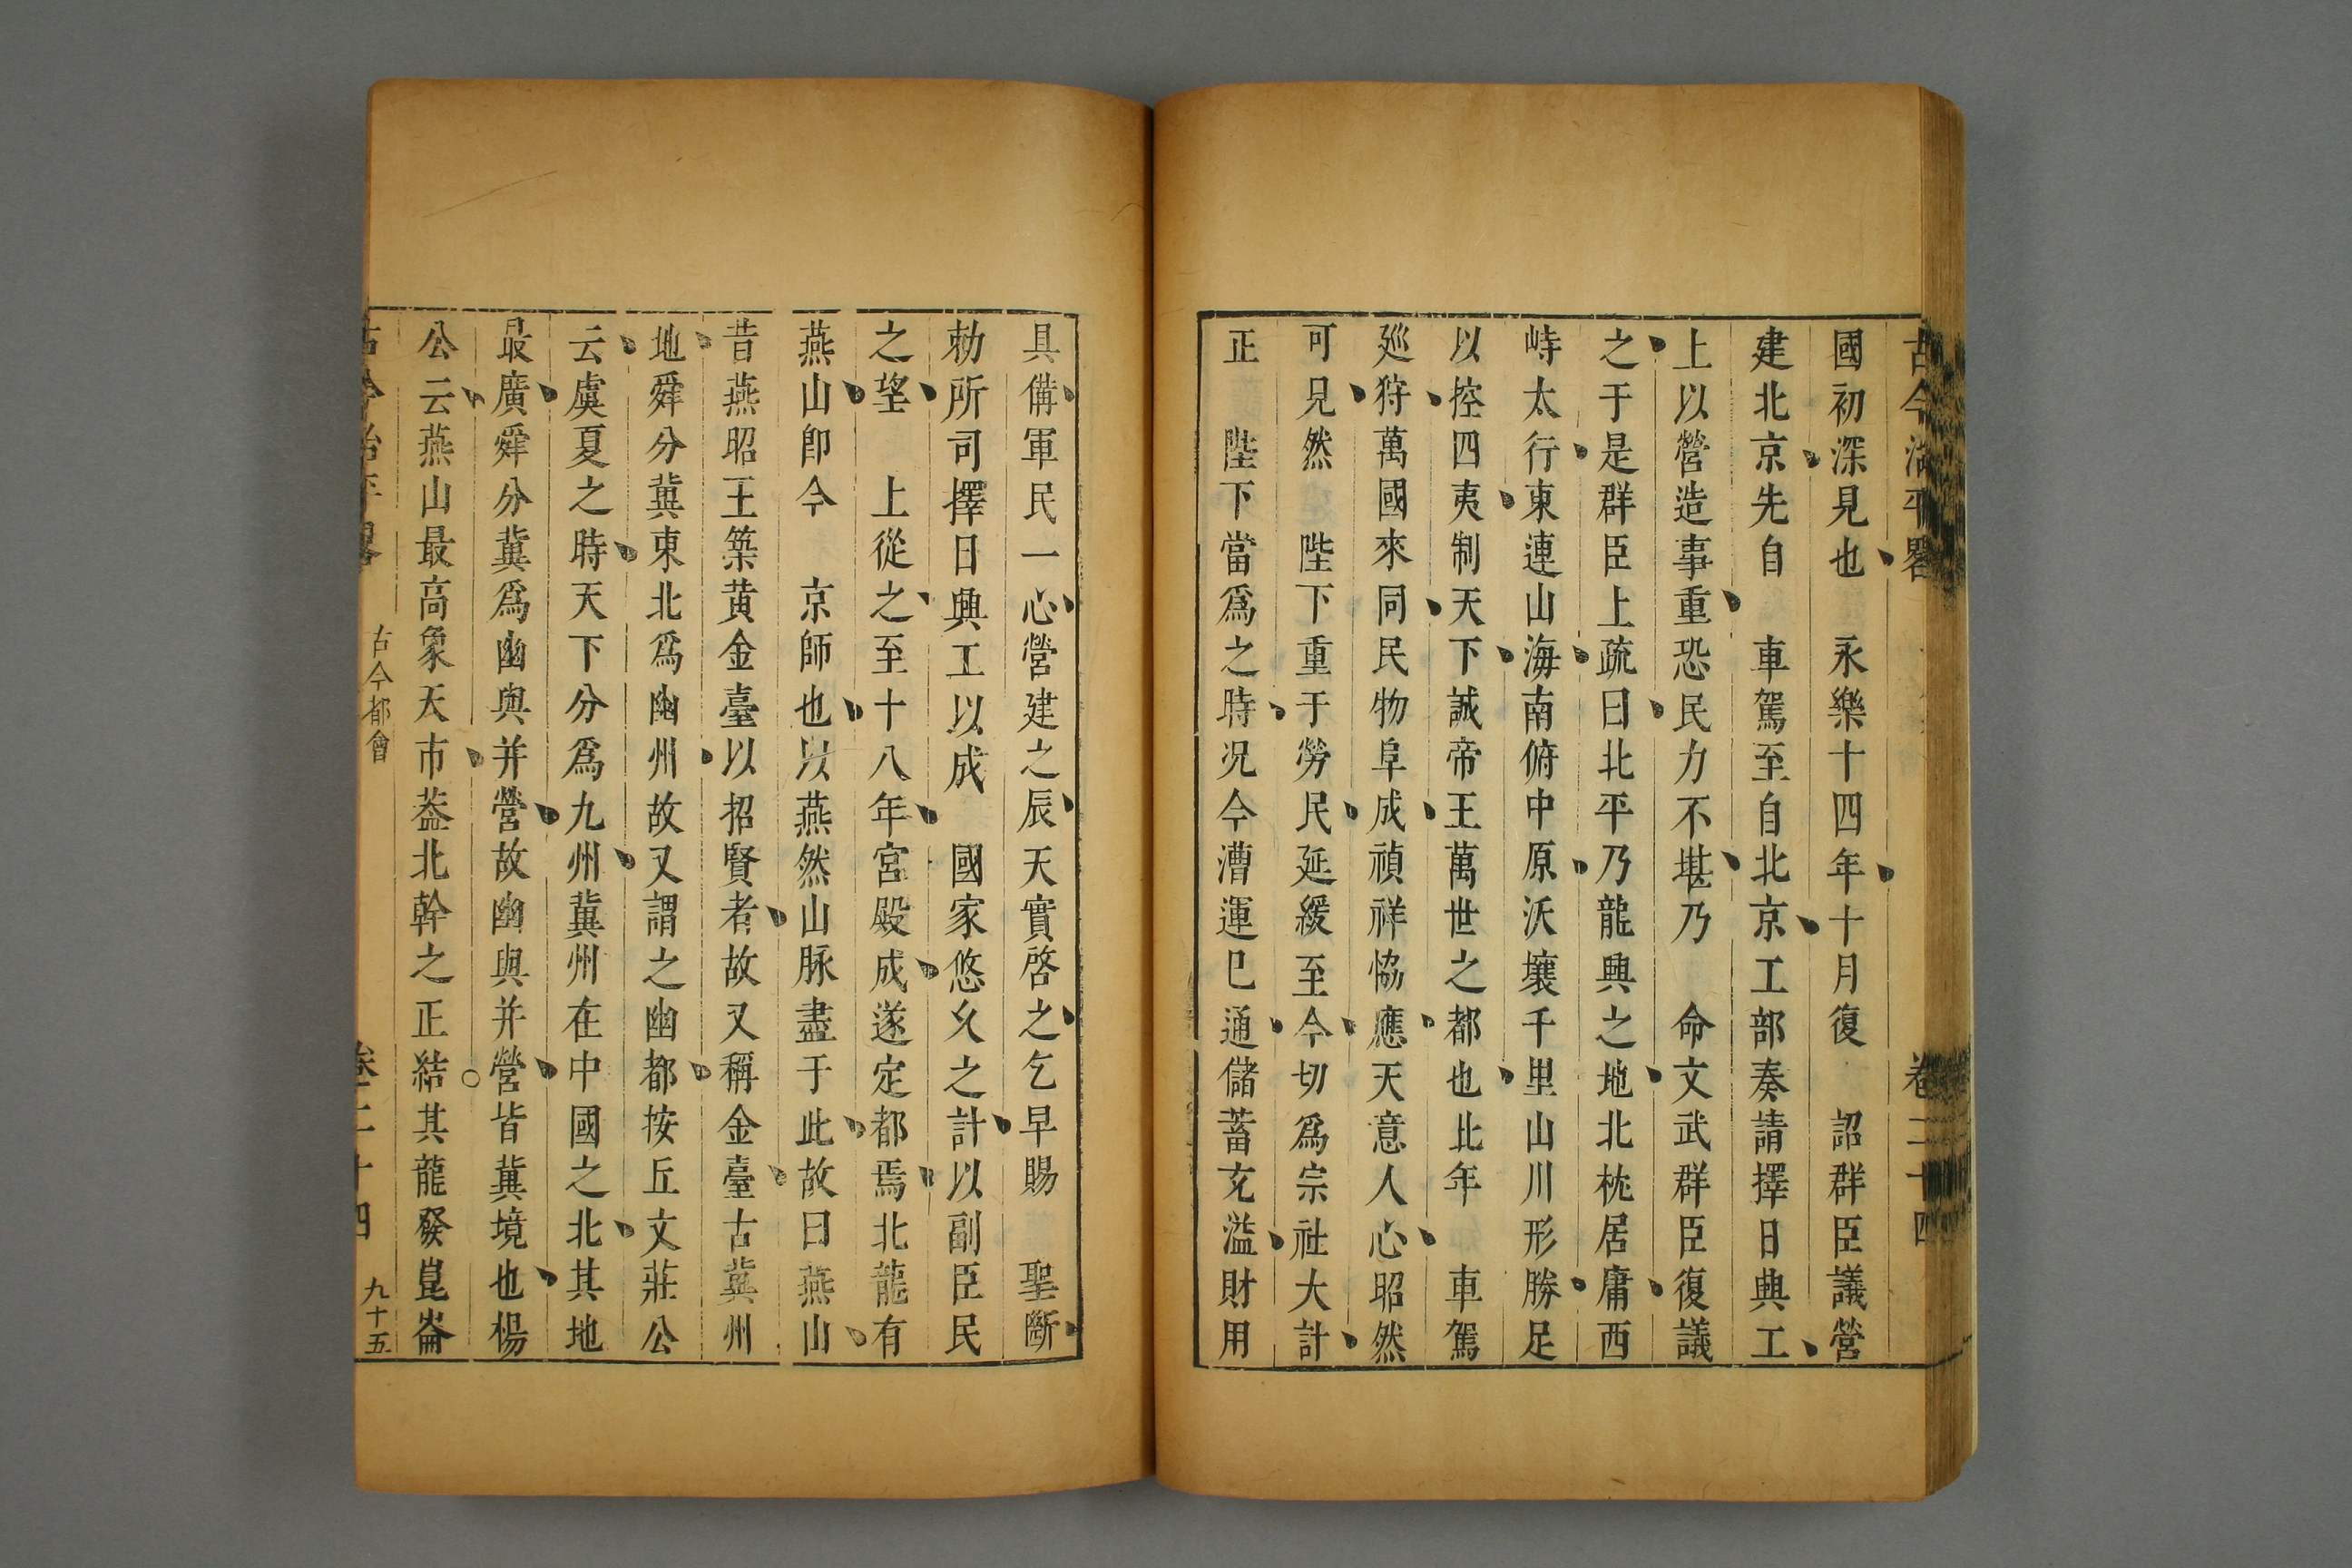 古今治平畧 卷二十四
國初深見也 永樂十四年十月復 詔群臣議營
建北京先自 車駕至自北京工部奏請擇日興工
上以營造事重恐民力不堪乃 命文武群臣復議
之于是群臣上疏曰北平乃龍興之地北枕居庸西
峙太行東連山海南俯中原沃壤千里山川形勝足
以控四夷制天下誠帝王萬世之都也比年 車駕
廵狩萬國來同民物阜成禎祥恊應天意人心昭然
可見然 陛下重于勞民延緩至今切爲宗社大計
正 陛下當爲之時况今漕運已通儲蓄充溢財用
具備軍民一心營建之辰天實啓之乞早賜 聖斷
勅所司擇日興工以成 國家悠久之計以副臣民
之望 上從之至十八年宮殿成遂定都焉北龍有
燕山卽今 京師也以燕然山脉盡于此故曰燕山
昔燕昭王築黄金臺以招賢者故又稱金臺古冀州
地舜分冀東北爲幽州故又謂之幽都按丘文莊公
云虞夏之時天下分爲九州冀州在中國之北其地
最廣舜分冀爲幽與并營故幽與并營皆冀境也楊
公云燕山最高象天市葢北幹之正結其龍發崑崙
古今治平畧 古今都會 卷二十四 九十五